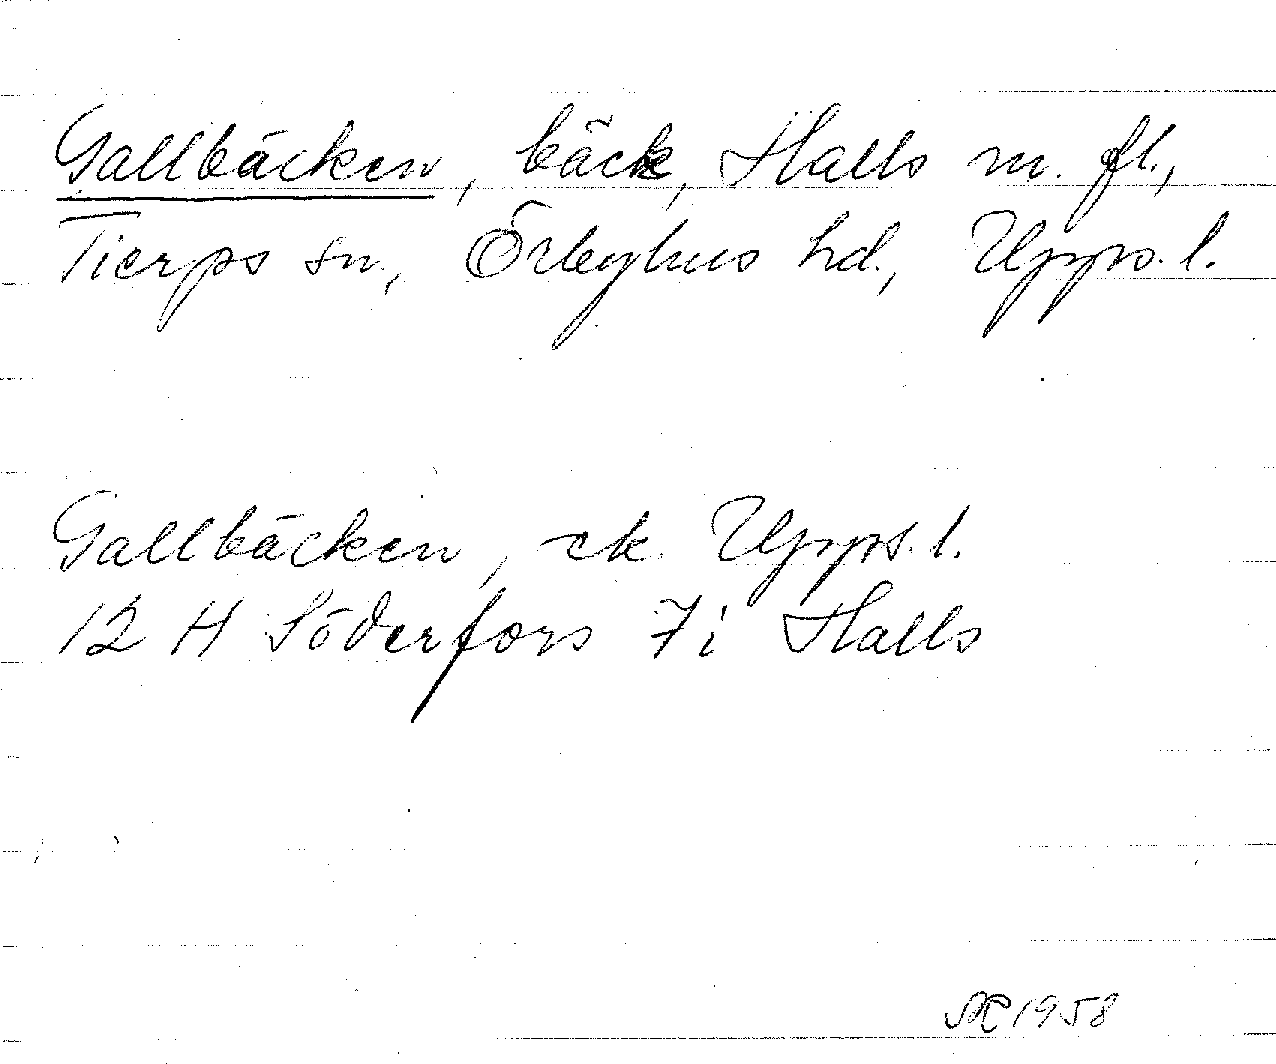 Gallbäcken, bäck, Halls m. fl.,
Tierps sn., Örbyhus hd., Upps. l.
Gallbäcken, ek Upps. l.
12 H Söderfors 7i Halls
1958